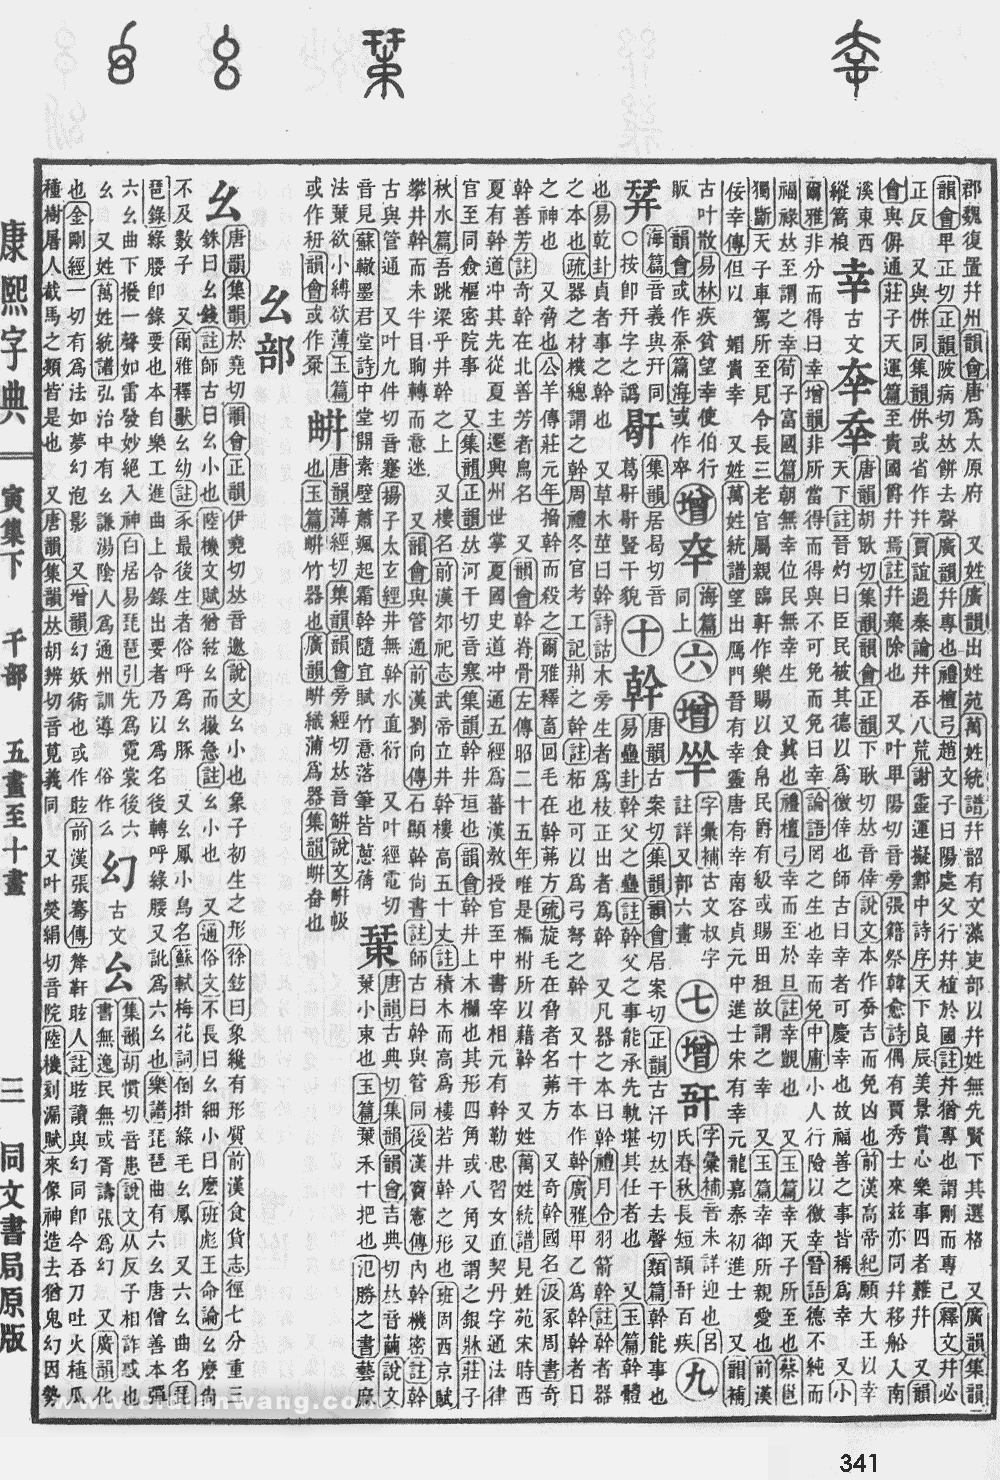 郡魏復置幷州韻會唐爲太原府 又姓廣韻出姓苑萬姓統譜幷韶有文藻吏部以幷姓無先賢下其選格 又廣韻集韻
韻會𠀤正切正韻陂病切𠀤餠去聲廣韻幷專也禮檀弓趙文子曰陽處父行幷植於國註幷猶專也謂剛而專己釋文幷必
正反 又與併同集韻併或省作幷賈誼過秦論幷吞八荒謝靈運擬鄴中詩序天下良辰美景賞心樂事四者難幷 又韻
會與偋通莊子天運篇至貴國爵幷焉註幷棄除也 又叶𤰞陽切音旁張籍祭韓愈詩偶有賈秀士來兹亦同幷移船入南
溪東西縱篙桹
幸 古文
唐韻胡耿切集韻韻會正韻下耿切𠀤音倖說文本作㚔吉而免凶也前漢高帝紀願大王以幸
天下註晉灼曰臣民被其德以爲徼倖也師古曰幸者可慶幸也故福善之事皆稱爲幸 又小
爾雅非分而得曰幸增韻非所當得而得與不可免而免曰幸論語罔之生也幸而免中庸小人行險以徼幸晉語德不純而
福祿𠀤至謂之幸荀子富國篇朝無幸位民無幸生 又冀也禮檀弓幸而至於旦註幸覬也 又玉篇幸天子所至也蔡邕
獨斷天子車駕所至見令長三老官屬親臨軒作樂賜以食帛民爵有級或賜田租故謂之幸 又玉篇幸御所親愛也前漢
佞幸傳但以媚貴幸 又姓萬姓統譜望出鴈門晉有幸靈唐有幸南容貞元中進士宋有幸元龍嘉泰初進士 又韻補
古叶散易林疾貧望幸使伯行販
韻會或作㚔篇海或作
增 海篇同上
六 增 字彙補古文叔字註詳又部六畫
七 增 字彙補音未詳迎也呂氏春秋長短頡䛩百疾
九
海篇音義與幵同○按卽幵字之譌
集韻居曷切音葛𣃁𣃁豎干貌
十
幹 唐韻古案切集韻韻會居案切正韻古汗切𠀤干去聲類篇幹能事也
易蠱卦幹父之蠱註幹父之事能承先軌堪其任者也 又玉篇幹體
也易乾卦貞者事之幹也 又草木莖曰幹詩詁木旁生者爲枝正出者爲幹 又凡器之本曰幹禮月令羽箭幹註幹者器
之本也疏器之材樸總謂之幹周禮冬官考工記荆之幹註柘也可以爲弓弩之幹 又十干本作幹廣雅甲乙爲幹幹者日
之神也 又脅也公羊傳莊元年搚幹而殺之爾雅釋畜回毛在幹茀方疏旋毛在脅者名茀方 又奇幹國名汲冢周書奇
幹善芳註奇幹在北善芳者鳥名 又韻會幹脊骨左傳昭二十五年唯是楄柎所以藉幹 又姓萬姓統譜見姓苑宋時西
夏有幹道冲其先從夏主遷興州世掌夏國史道冲通五經爲蕃漢敎授官至中書宰相元有幹勒忠習女直契丹字通法律
官至同僉樞密院事 又集韻正韻𠀤河干切音寒集韻幹井垣也韻會幹井上木欄也其形四角或八角又謂之銀牀莊子
秋水篇吾跳梁乎井幹之上 又樓名前漢郊祀志武帝立井幹樓高五十丈註積木而高爲樓若井幹之形也班固西京賦
攀井幹而未半目眴轉而意迷 又韻會與管通前漢劉向傳石顯幹尙書註師古曰幹與管同後漢竇憲傳內幹機密註幹
古與管通 又叶九件切音蹇揚子太玄經井無幹水直衍 又叶經電切音見
蘇轍墨君堂詩中堂開素壁蕭颯起霜幹隨宜賦竹意落筆皆蔥蒨
唐韻古典切集韻韻會吉典切𠀤音繭說文𣒅小束也玉篇𣒅禾十把也氾勝之書藝𪎭
法𣒅欲小縛欲薄玉篇或作秆韻會或作
唐韻薄經切集韻韻會旁經切𠀤音缾說文㡁帗也玉篇㡁竹器也廣韻㡁織蒲爲器集韻㡁畚也
幺部
幺 唐韻集韻於堯切韻會正韻伊堯切𠀤音邀說文幺小也象子初生之形徐鉉曰象纔有形質前漢食貨志徑七分重三
銖曰幺錢註師古曰幺小也陸機文賦猶絃幺而徽急註幺小也 又通俗文不長曰幺細小曰麽班彪王命論幺麽尙
不及數子 又爾雅釋獸幺幼註豕最後生者俗呼爲幺豚 又幺鳳小鳥名蘇軾梅花詞倒掛綠毛幺鳳 又六幺曲名琵
琶錄綠腰卽錄要也本自樂工進曲上令錄出要者乃以爲名後轉呼綠腰又訛爲六幺也樂譜琵琶曲有六幺唐僧善本彈
六幺曲下撥一聲如雷發妙絕入神白居易琵琶引先爲霓裳後六幺 又姓萬姓統譜弘治中有幺謙湯陰人爲通州訓導 俗作么
幻 古文 集韻韻會胡慣切音患說文从反予相詐惑也
書無逸民無或胥譸張爲幻 又廣韻化
也金剛經一切有爲法如夢幻泡影 又增韻幻妖術也或作眩前漢張騫傳犛靬眩人註眩讀與幻同卽今吞刀吐火植瓜
種樹屠人截馬之類皆是也 又唐韻集韻𠀤胡辨切音莧義同 又叶熒絹切音院陸機刻漏賦來像神造去猶鬼幻因勢
康熙字典 寅集下 干部 五畫至十畫 三 同文書局原版
341